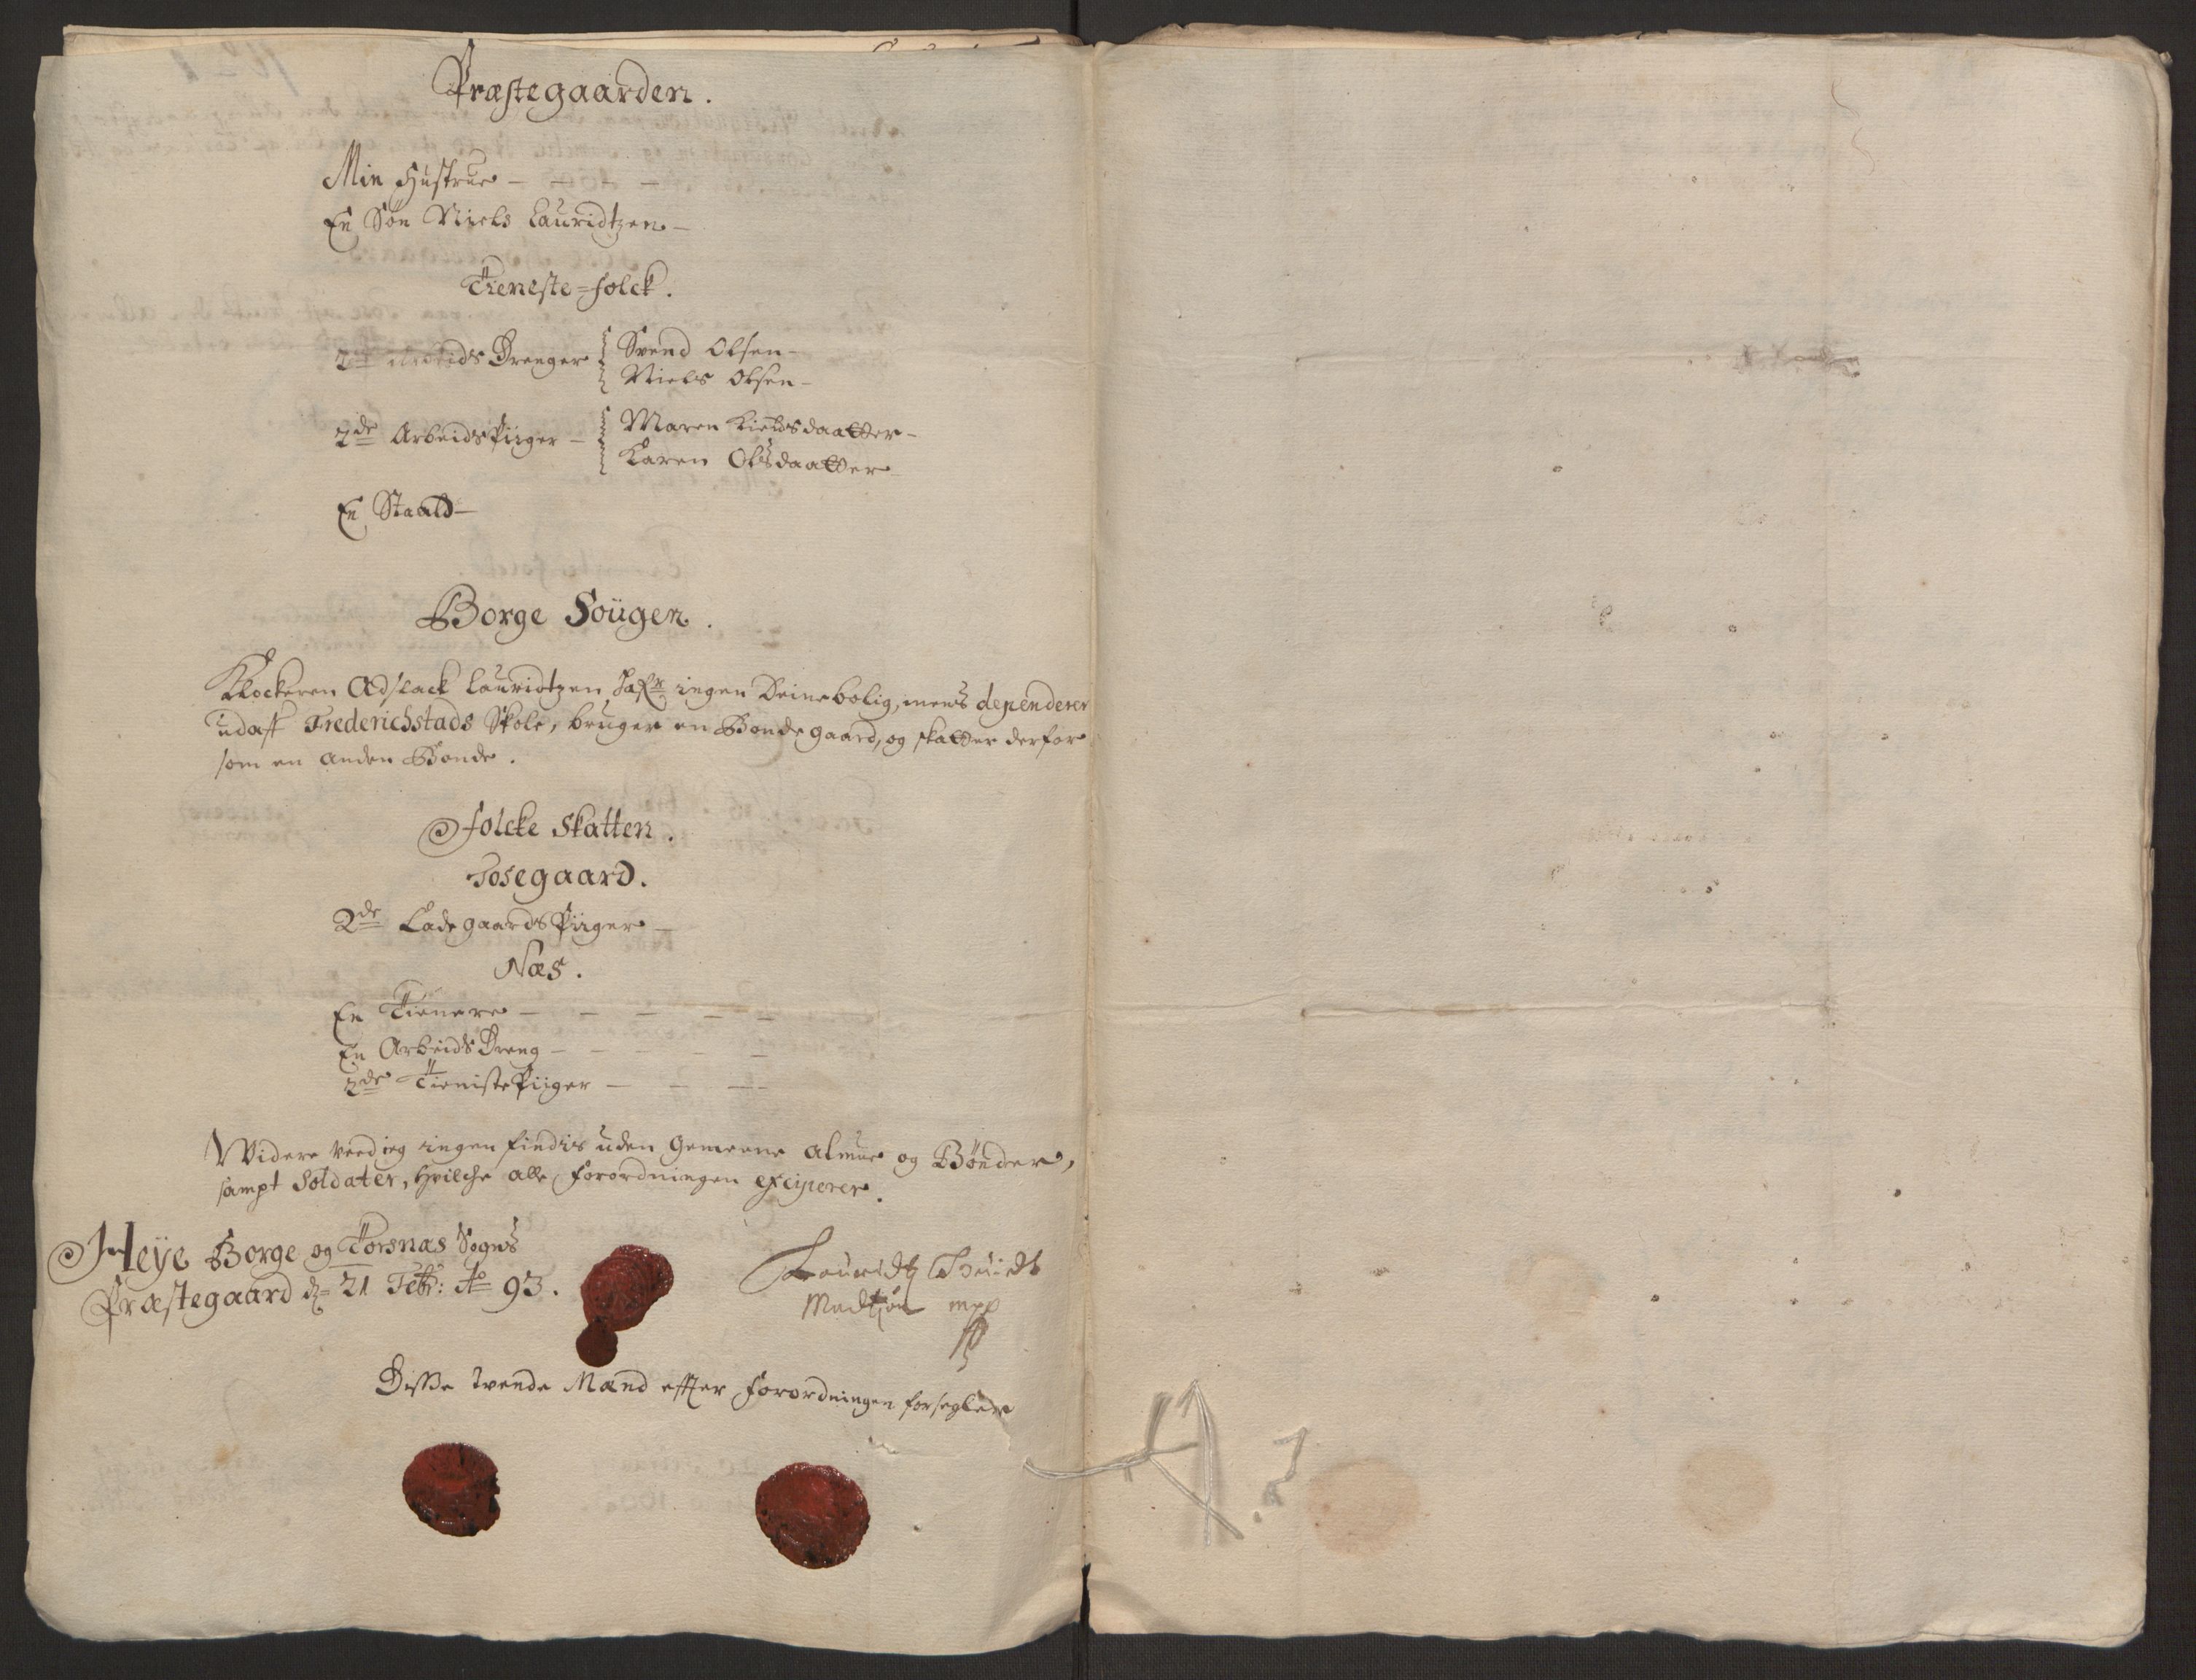 Præstegaarden.
Min Hustrue – – – –
En Søn Niels Lauridtzen –
Tieneste-folck.
2de Arbeids Drenger Svend Olsen –
Niels Olsen –
2de Arbeids Piiger – Maren Kieldsdaatter –
Karen Olsdaatter –
En Staald –
Borge Sougen.
Klockeren Adslack Lauridtzen, hafr ingen Deinebolig, mens dependerer
udaff Frederichstads Skole, bruger en Bondegaard, og skatter derfor
som en anden Bonde.
Folcke Skatten.
Tosegaard.
2de Ladegaards Piiger –
Næs.
En Tienere – – – – –
En Arbeids Dreng – – – – –
2de Tieniste Piiger – – –
Widere veed ieg ingen findis uden Gemeene almue og Bønder,
sampt Soldater, hvilche alle Forordningen exciperer.
Heÿe Borge og Torsnæs Sogns
Præstegaard d. 21 Febr: Ao 93.
Lauridtz
Madtzøn mpp
Disse tvende Mænd effter Forordningen forsegler